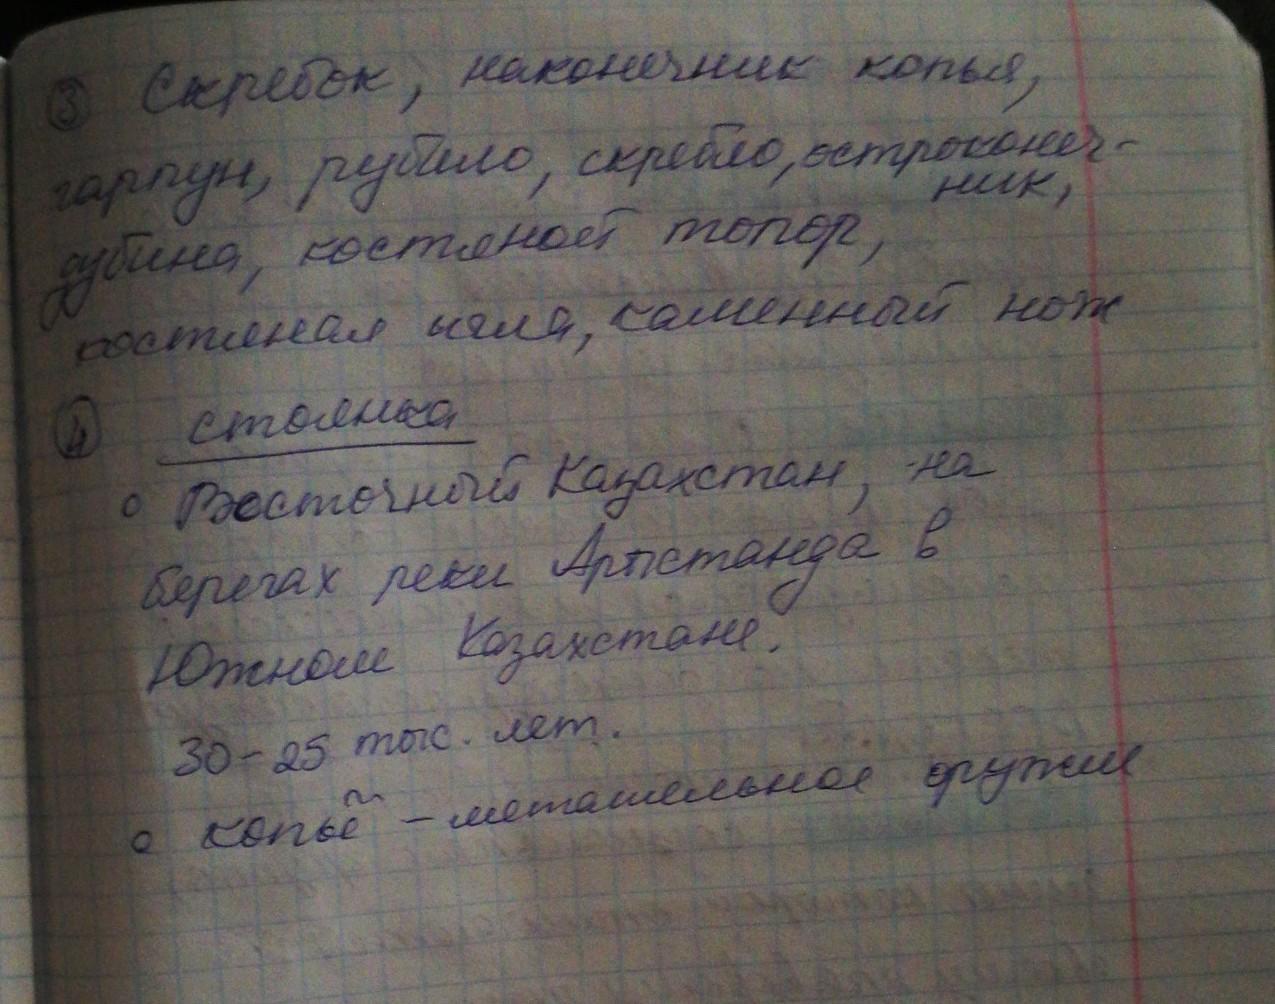 ③ Скребок, наконечник копья,
гарпун, рубило, скребло, остроконеч-
ник,
дубина, костяной топор,
костяная игла, каменный нож
④ стоянка
• Восточный Казахстан, на
берегах реки Арыстанда в
Южном Казахстане.
30-25 тыс. лет.
• копьё - метательное оружие